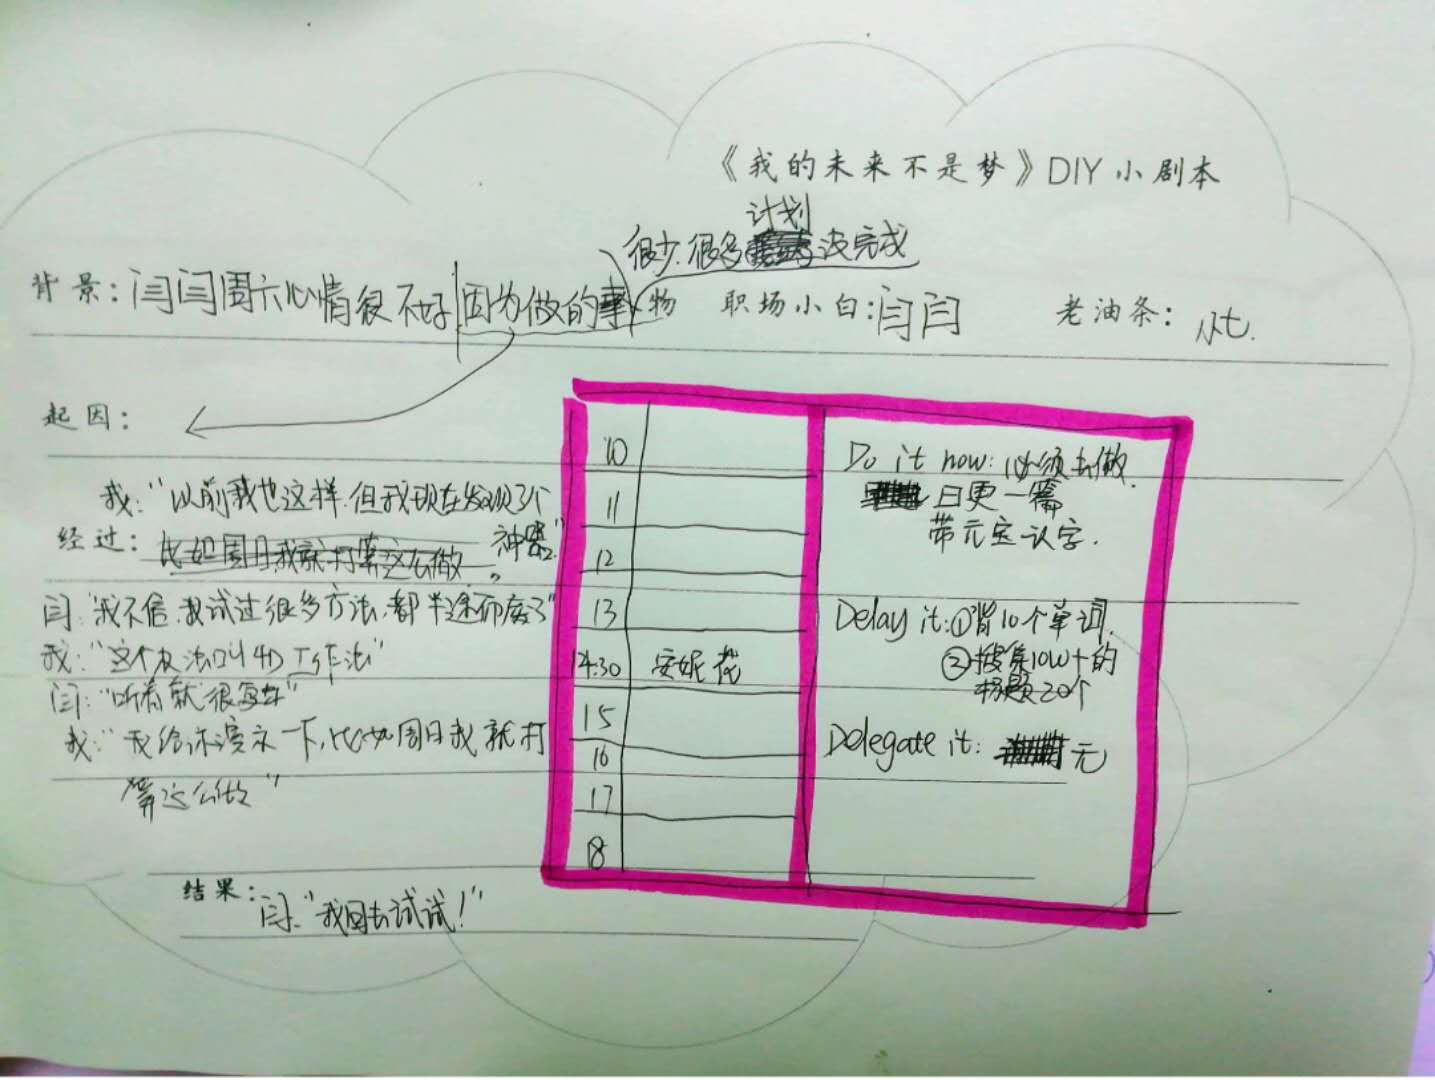 《我的未来不是梦》DIY小剧本
计划
很少.很多 没完成
背景：闫闫周六心情很不好 因为做的事 物 职场小白：闫闫 老油条：
起因：
我："以前我也这样.但我现在发现了个
神器."
经过：比如周日我就打算这么做。
闫："我不信.我试过很多方法,都半途而废了"
我："这个方法叫4D工作法"
闫："听着就很复杂"
我："我给你演示一下,比如周日我就打
算这么做"
结果：
闫："我回去试试!"
10
11
12
13
14:30 安妮花
15
16
17
18
Do it now: 必须去做.
日更一篇
带元宝认字.
Delay it:①背10个单词.
②搜集10W+的
标题20个
Delegate it: 无